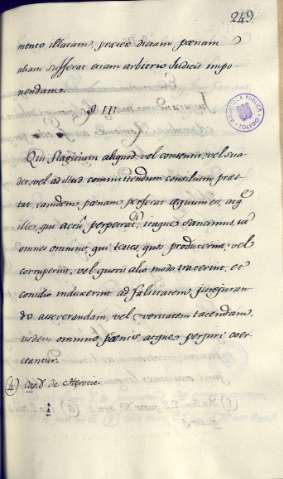 249
mento illatam, præter dictam, pœnam
aliam sufferat etiam arbitrio Judicis impo
nendam.
§ III.
Qui flagitium aliquod, vel consentit, vel sua
det, vel ad illud committendum consilium præs
tat, eamdem pœnam preferat æquum est, ac
ille, qui actu perpetrat: (4) itaque sancimus, ut
omnes omnino, qui testes, quos producerint, vel
corruperint, vel quovis alio modo traxerint, et
consilio induxerint ad falsitatem jurejuran
do asseverandam, vel veritatem tacendam,
iisdem omnino pœnis atque perjuri coer
ceantur.
(4) de Heretic.